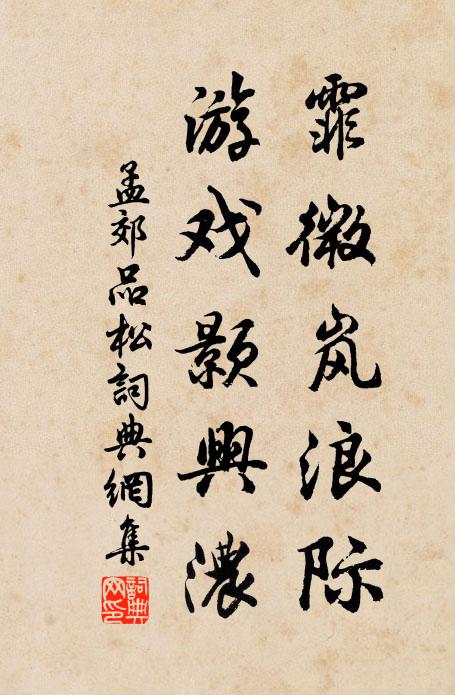 霏微岚浪际
游戏颢興濃
孟郊品松詞典網集
詞典网印